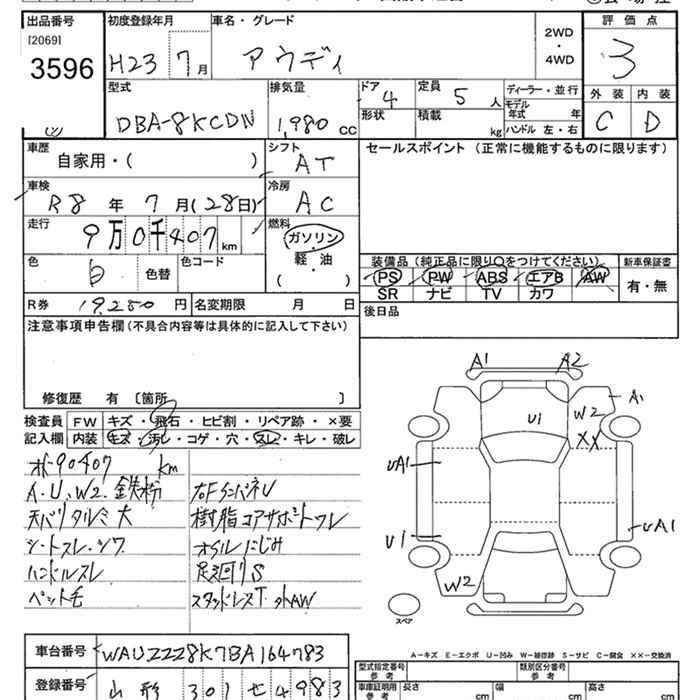 出品番号
[2069]
3596
初度登録年月
H23 7 月
車名・グレード
アウディ
2WD
・
4WD
評価点
3
外装 内装
C D
型式
DBA-8KCDN
排気量
1,980 cc
ドア
4
定員
5 人
形状
積載
kg
ディーラー・並行
モデル年式 年
ハンドル 左・右
車歴
自家用・( )
シフト
AT
セールスポイント (正常に機能するものに限ります)
車検
R8 年 7 月(28日)
冷房
AC
走行
9万0千407 km
燃料
ガソリン
・
軽・油
( )
色
色替
色コード
装備品 (純正品に限り○をつけてください)
PS PW ABS エアB AW
SR ナビ TV カワ
新車保証書
有・無
R券 19,280 円
名変期限 月 日
後日品
注意事項申告欄(不具合内容等は具体的に記入して下さい)
修復歴 有 〔箇所 〕
検査員記入欄
FW キズ・飛石・ヒビ割・リペア跡・×要
内装 キズ・汚レ・コゲ・穴・スレ・キレ・破レ
ホ-90407 km
A.U、W2.鉄粉
天バリタルミ大
シートスレ・シワ
ハンドルスレ
ペット毛
右FインパネU
樹脂コアサポートワレ
オイルにじみ
足廻りS
スタッドレスT 外AW
A1 A2
A1
U1
W2
XX
UA1
U1
UA1
W2
スペア
A-キズ E-エクボ U-凹み W-補修跡 S-サビ C-腐食 ××-交換済
車台番号
WAUZZZ8K7BA164783
登録番号
山形 301 せ4983
型式指定番号
参考
類別区分番号
参考
車庫証明用
参考
長さ cm
幅 cm
高さ cm